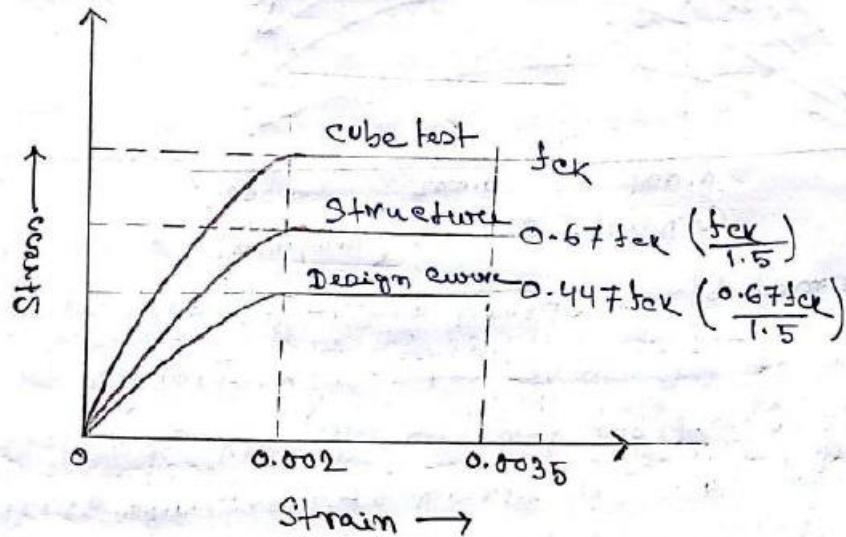 cube test
fck
Structure
0.67 fck (fck/1.5)
Design curve
0.447 fck (0.67fck/1.5)
Stress →
0
0.002
0.0035
Strain →